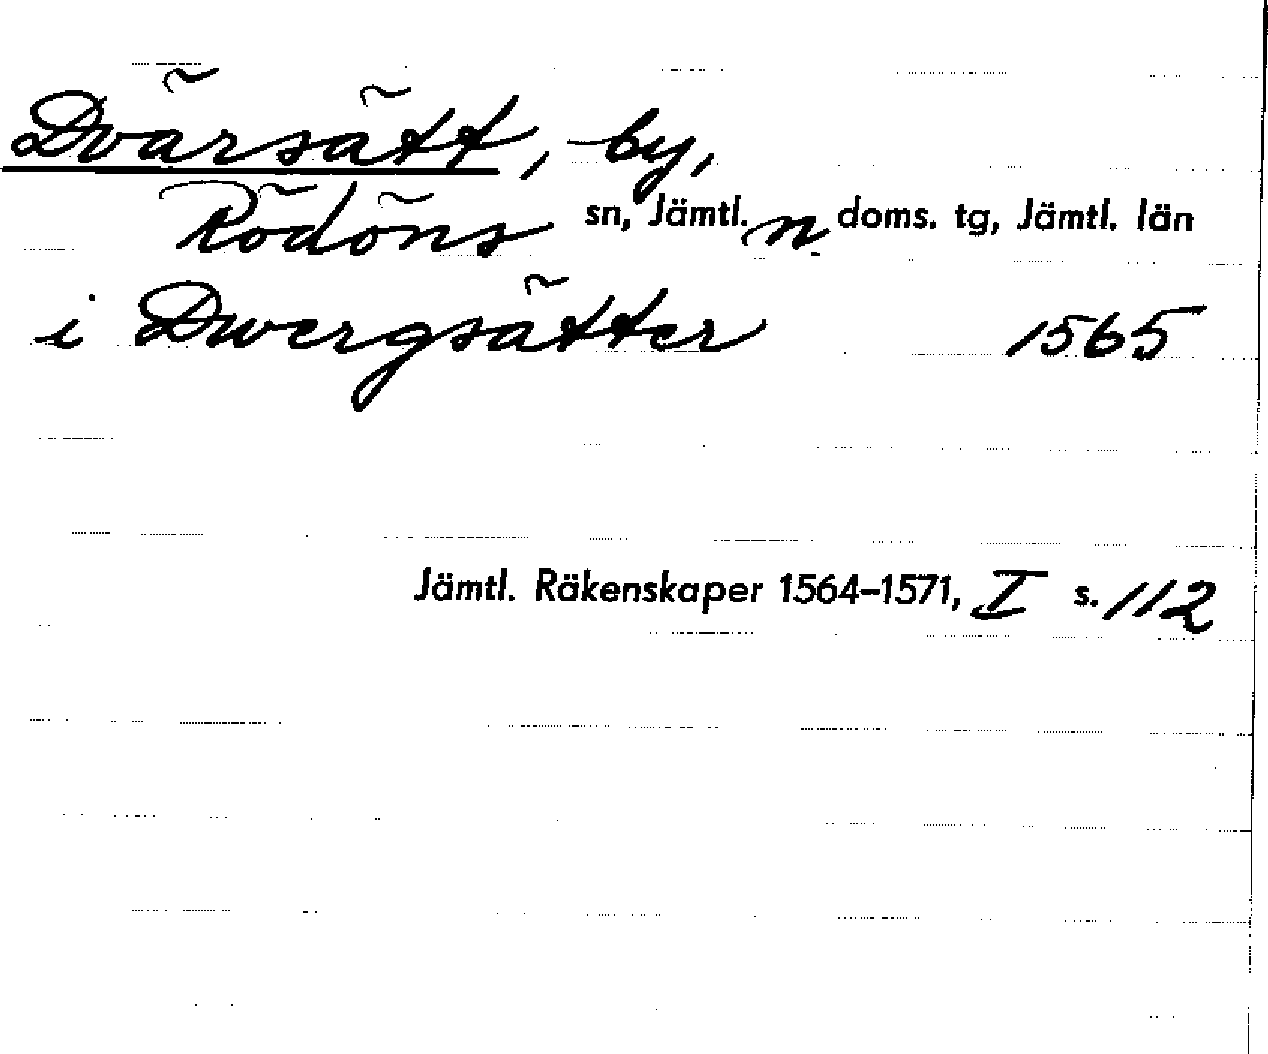 Dvärsätt, by,
Rödöns sn, Jämtl. n doms. tg, Jämtl. län
i Dwergsätter 1565
Jämtl. Räkenskaper 1564–1571, I s. 112